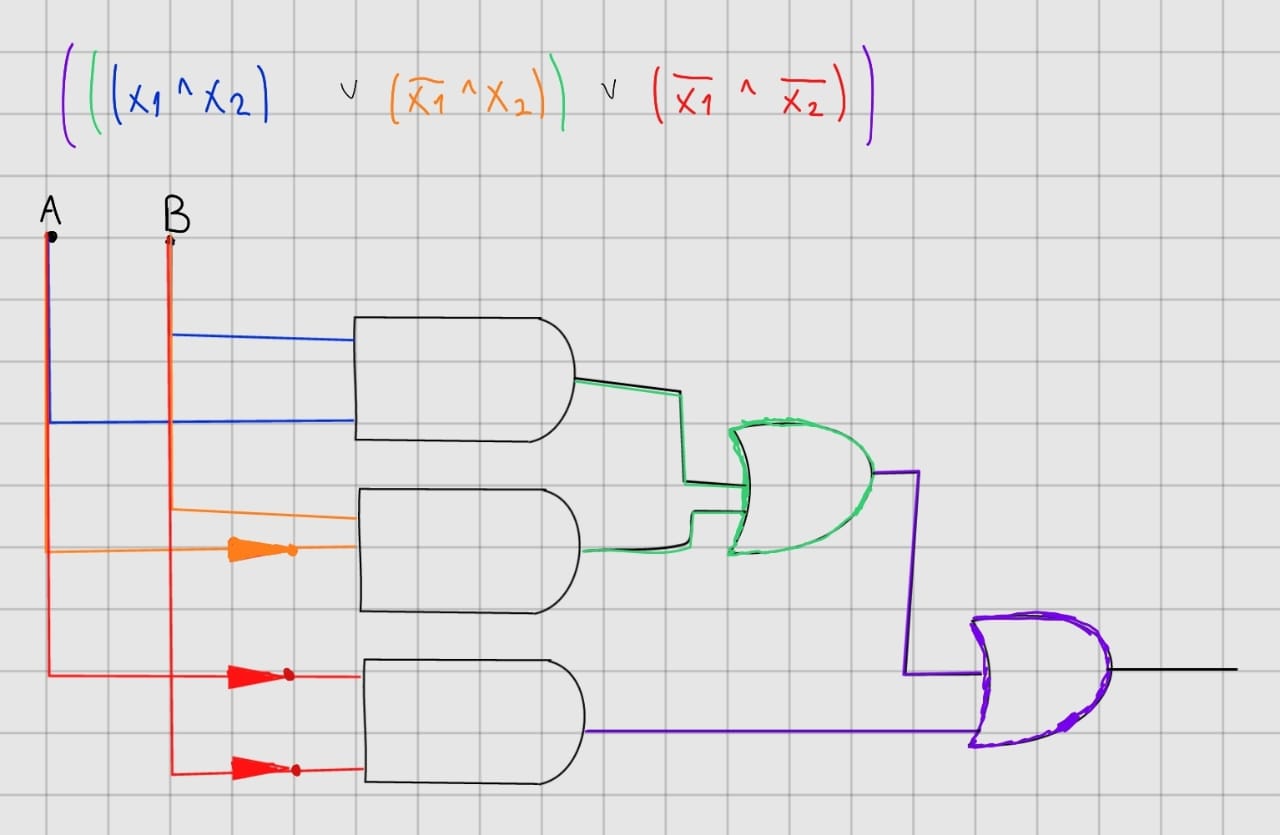 (((x₁ ∧ x₂) ∨ (x̅₁ ∧ x₂)) ∨ (x̅₁ ∧ x̅₂))
A B